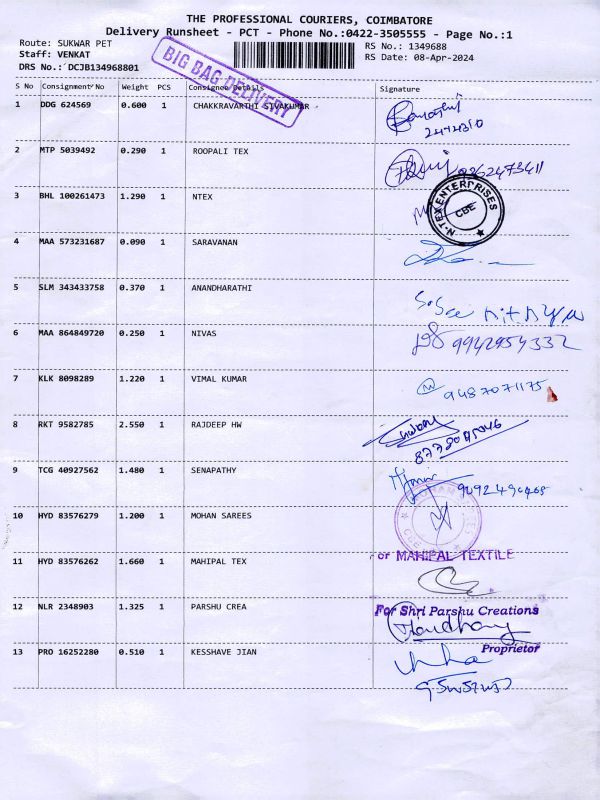 THE PROFESSIONAL COURIERS, COIMBATORE
Delivery Runsheet - PCT - Phone No.:0422-3505555 - Page No.:1
Route: SUKWAR PET
Staff: VENKAT
DRS No.: DCJB134968801
RS No.: 1349688
RS Date: 08-Apr-2024
BIG BAG DELIVERY
S No Consignment No Weight PCS Consignee Details Signature
1 DDG 624569 0.600 1 CHAKKRAVARTHI SIVAKUMAR
2 MTP 5039492 0.290 1 ROOPALI TEX
3 BHL 100261473 1.290 1 NTEX
N-TEX ENTERPRISES
CBE
4 MAA 573231687 0.090 1 SARAVANAN
5 SLM 343433758 0.370 1 ANANDHARATHI
6 MAA 864849720 0.250 1 NIVAS
9942954332
7 KLK 8098289 1.220 1 VIMAL KUMAR
9487071175
8 RKT 9582785 2.550 1 RAJDEEP HW
9 TCG 40927562 1.480 1 SENAPATHY
10 HYD 83576279 1.200 1 MOHAN SAREES
11 HYD 83576262 1.660 1 MAHIPAL TEX
or MAHIPAL TEXTILE
12 NLR 2348903 1.325 1 PARSHU CREA
For Shri Parshu Creations
Proprietor
13 PRO 16252280 0.510 1 KESSHAVE JIAN